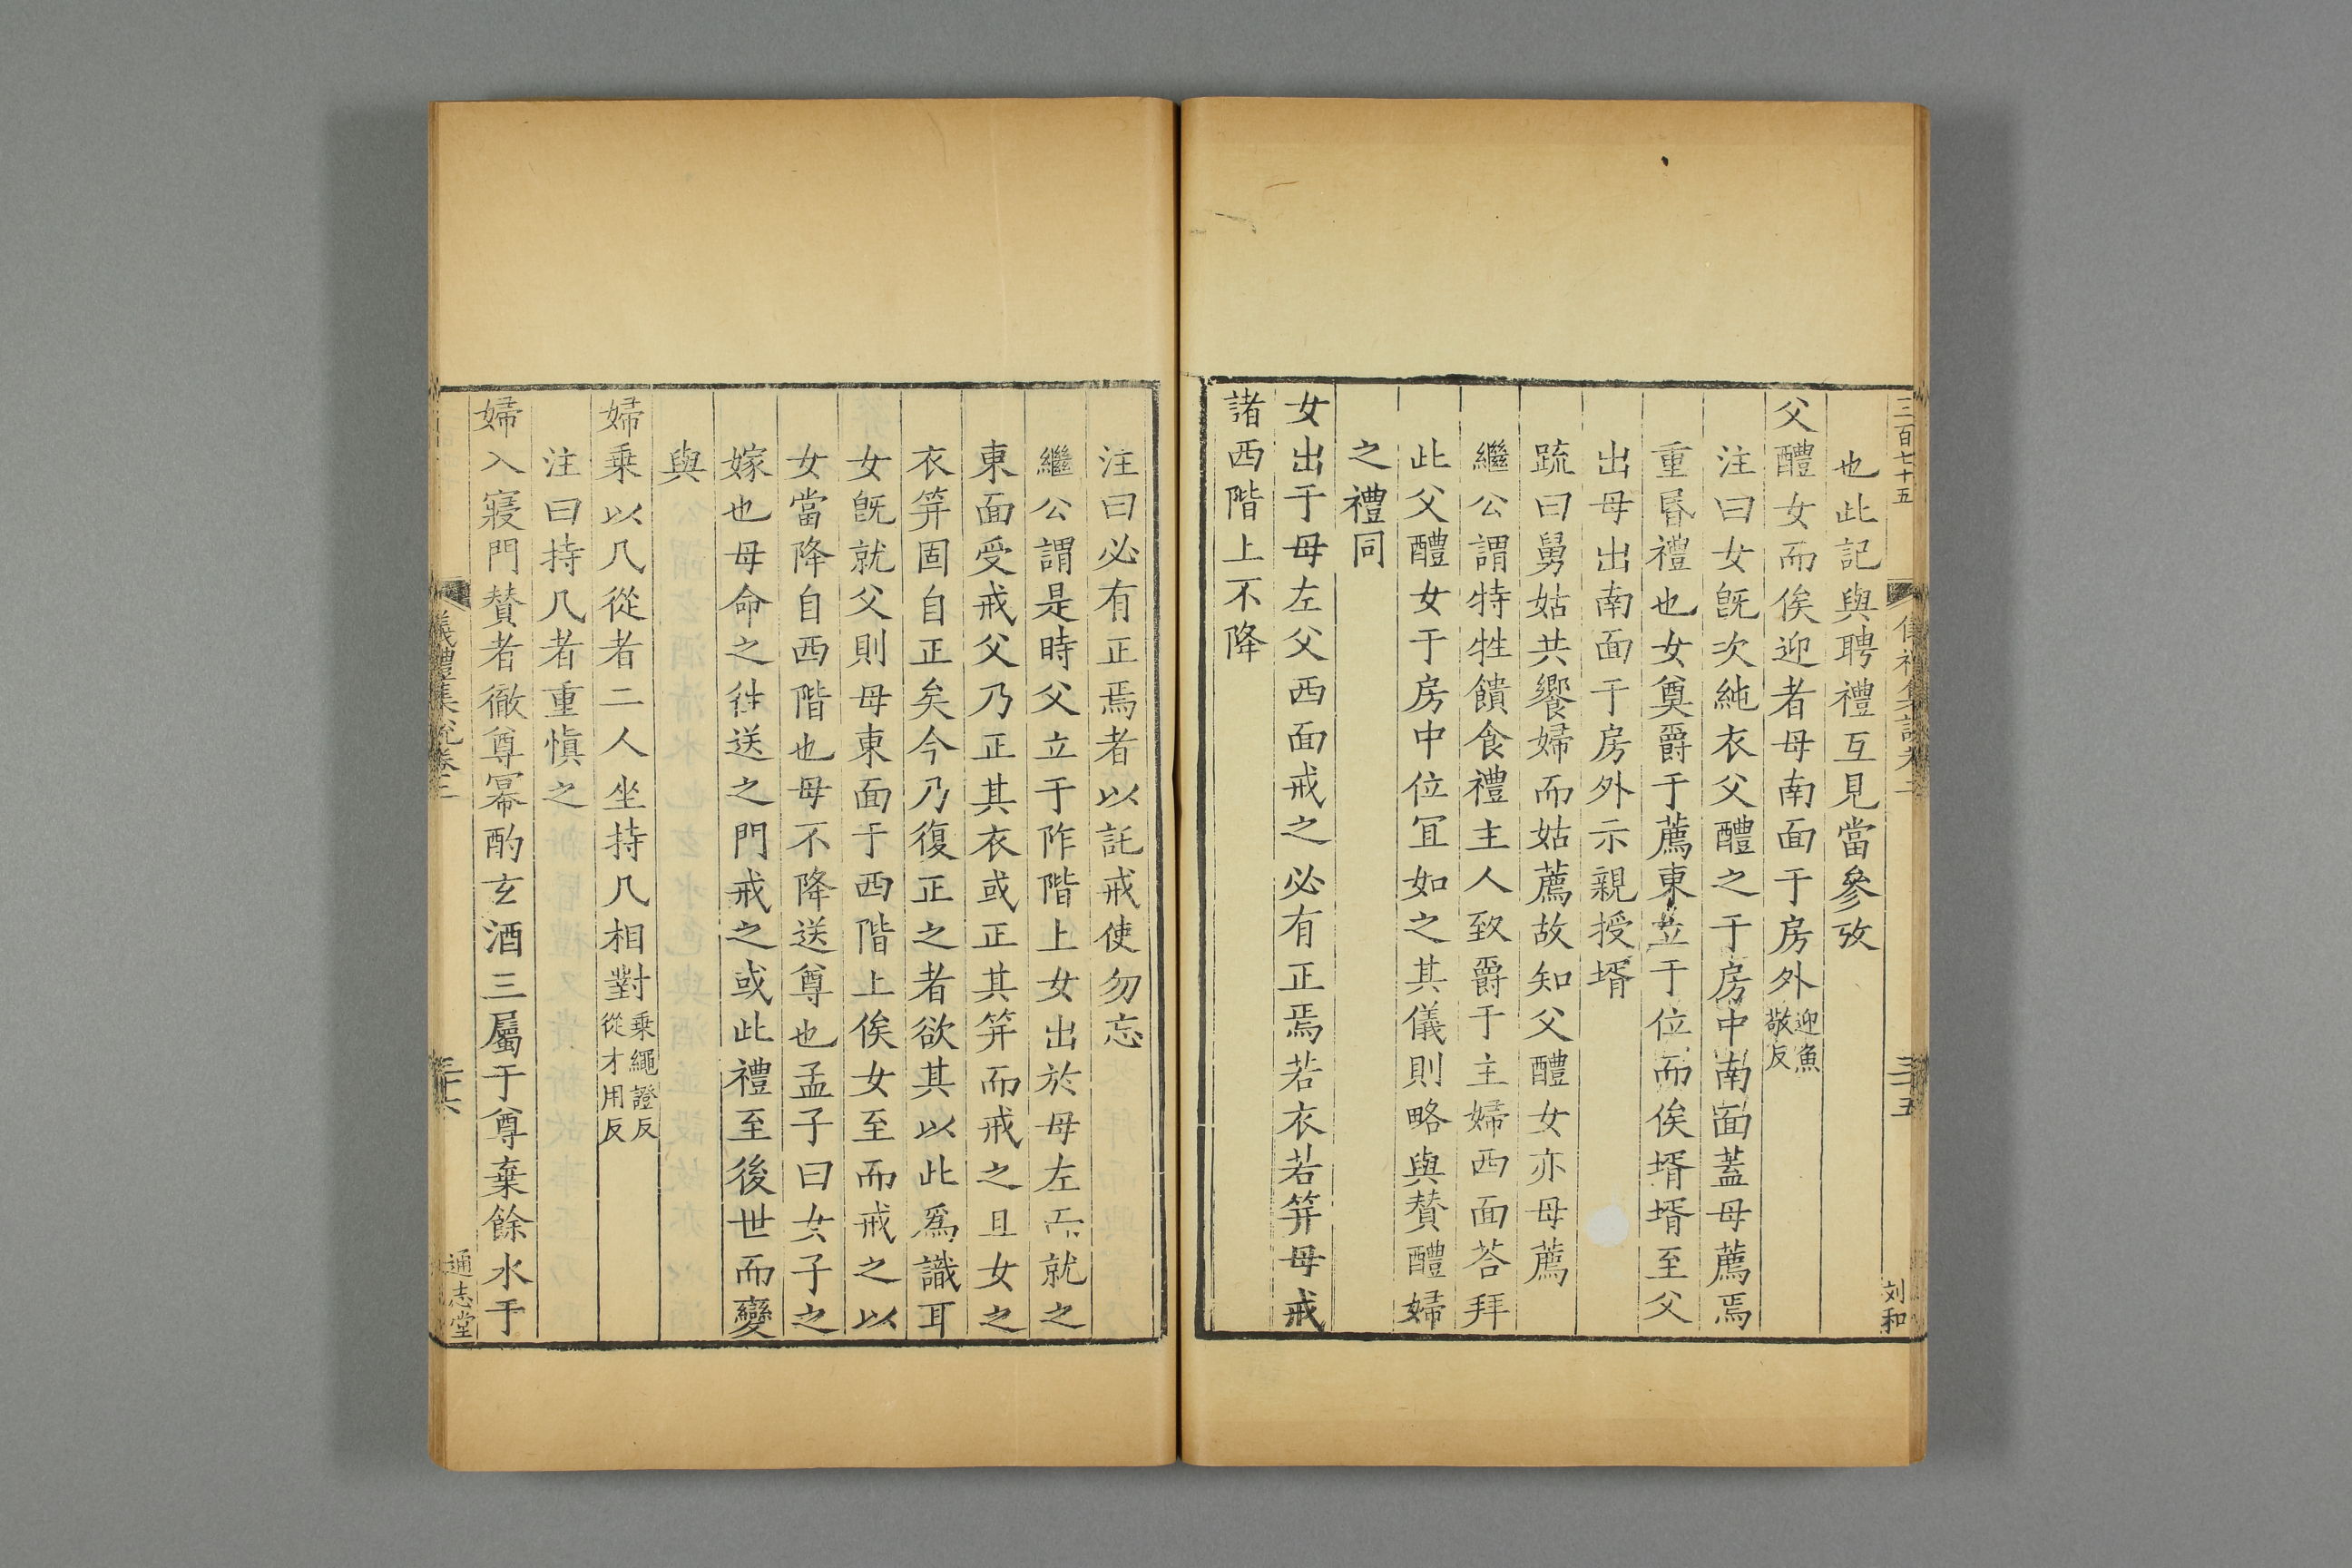 三百七十五
三十五
刘和
也此記與聘禮互見當參攷
父醴女而俟迎者母南面于房外迎魚敬反
注曰女旣次純衣父醴之于房中南面蓋母薦焉
重昏禮也女奠爵于薦東立于位而俟壻壻至父
出母出南面于房外示親授壻
疏曰舅姑共饗婦而姑薦故知父醴女亦母薦
繼公謂特牲饋食禮主人致爵于主婦西面荅拜
此父醴女于房中位宜如之其儀則略與贊醴婦
之禮同
女出于母左父西面戒之必有正焉若衣若笄母戒
諸西階上不降
注曰必有正焉者以託戒使勿忘
繼公謂是時父立于阼階上女出於母左而就之
東面受戒父乃正其衣或正其笄而戒之且女之
衣笄固自正矣今乃復正之者欲其以此爲識耳
女旣就父則母東面于西階上俟女至而戒之以
女當降自西階也母不降送尊也孟子曰女子之
嫁也母命之徃送之門戒之或此禮至後世而變
與
婦乗以几從者二人坐持几相對乗繩證反從才用反
注曰持几者重愼之
婦入寢門賛者徹尊冪酌玄酒三屬于尊棄餘水于
儀禮集說卷二
三十六
通志堂